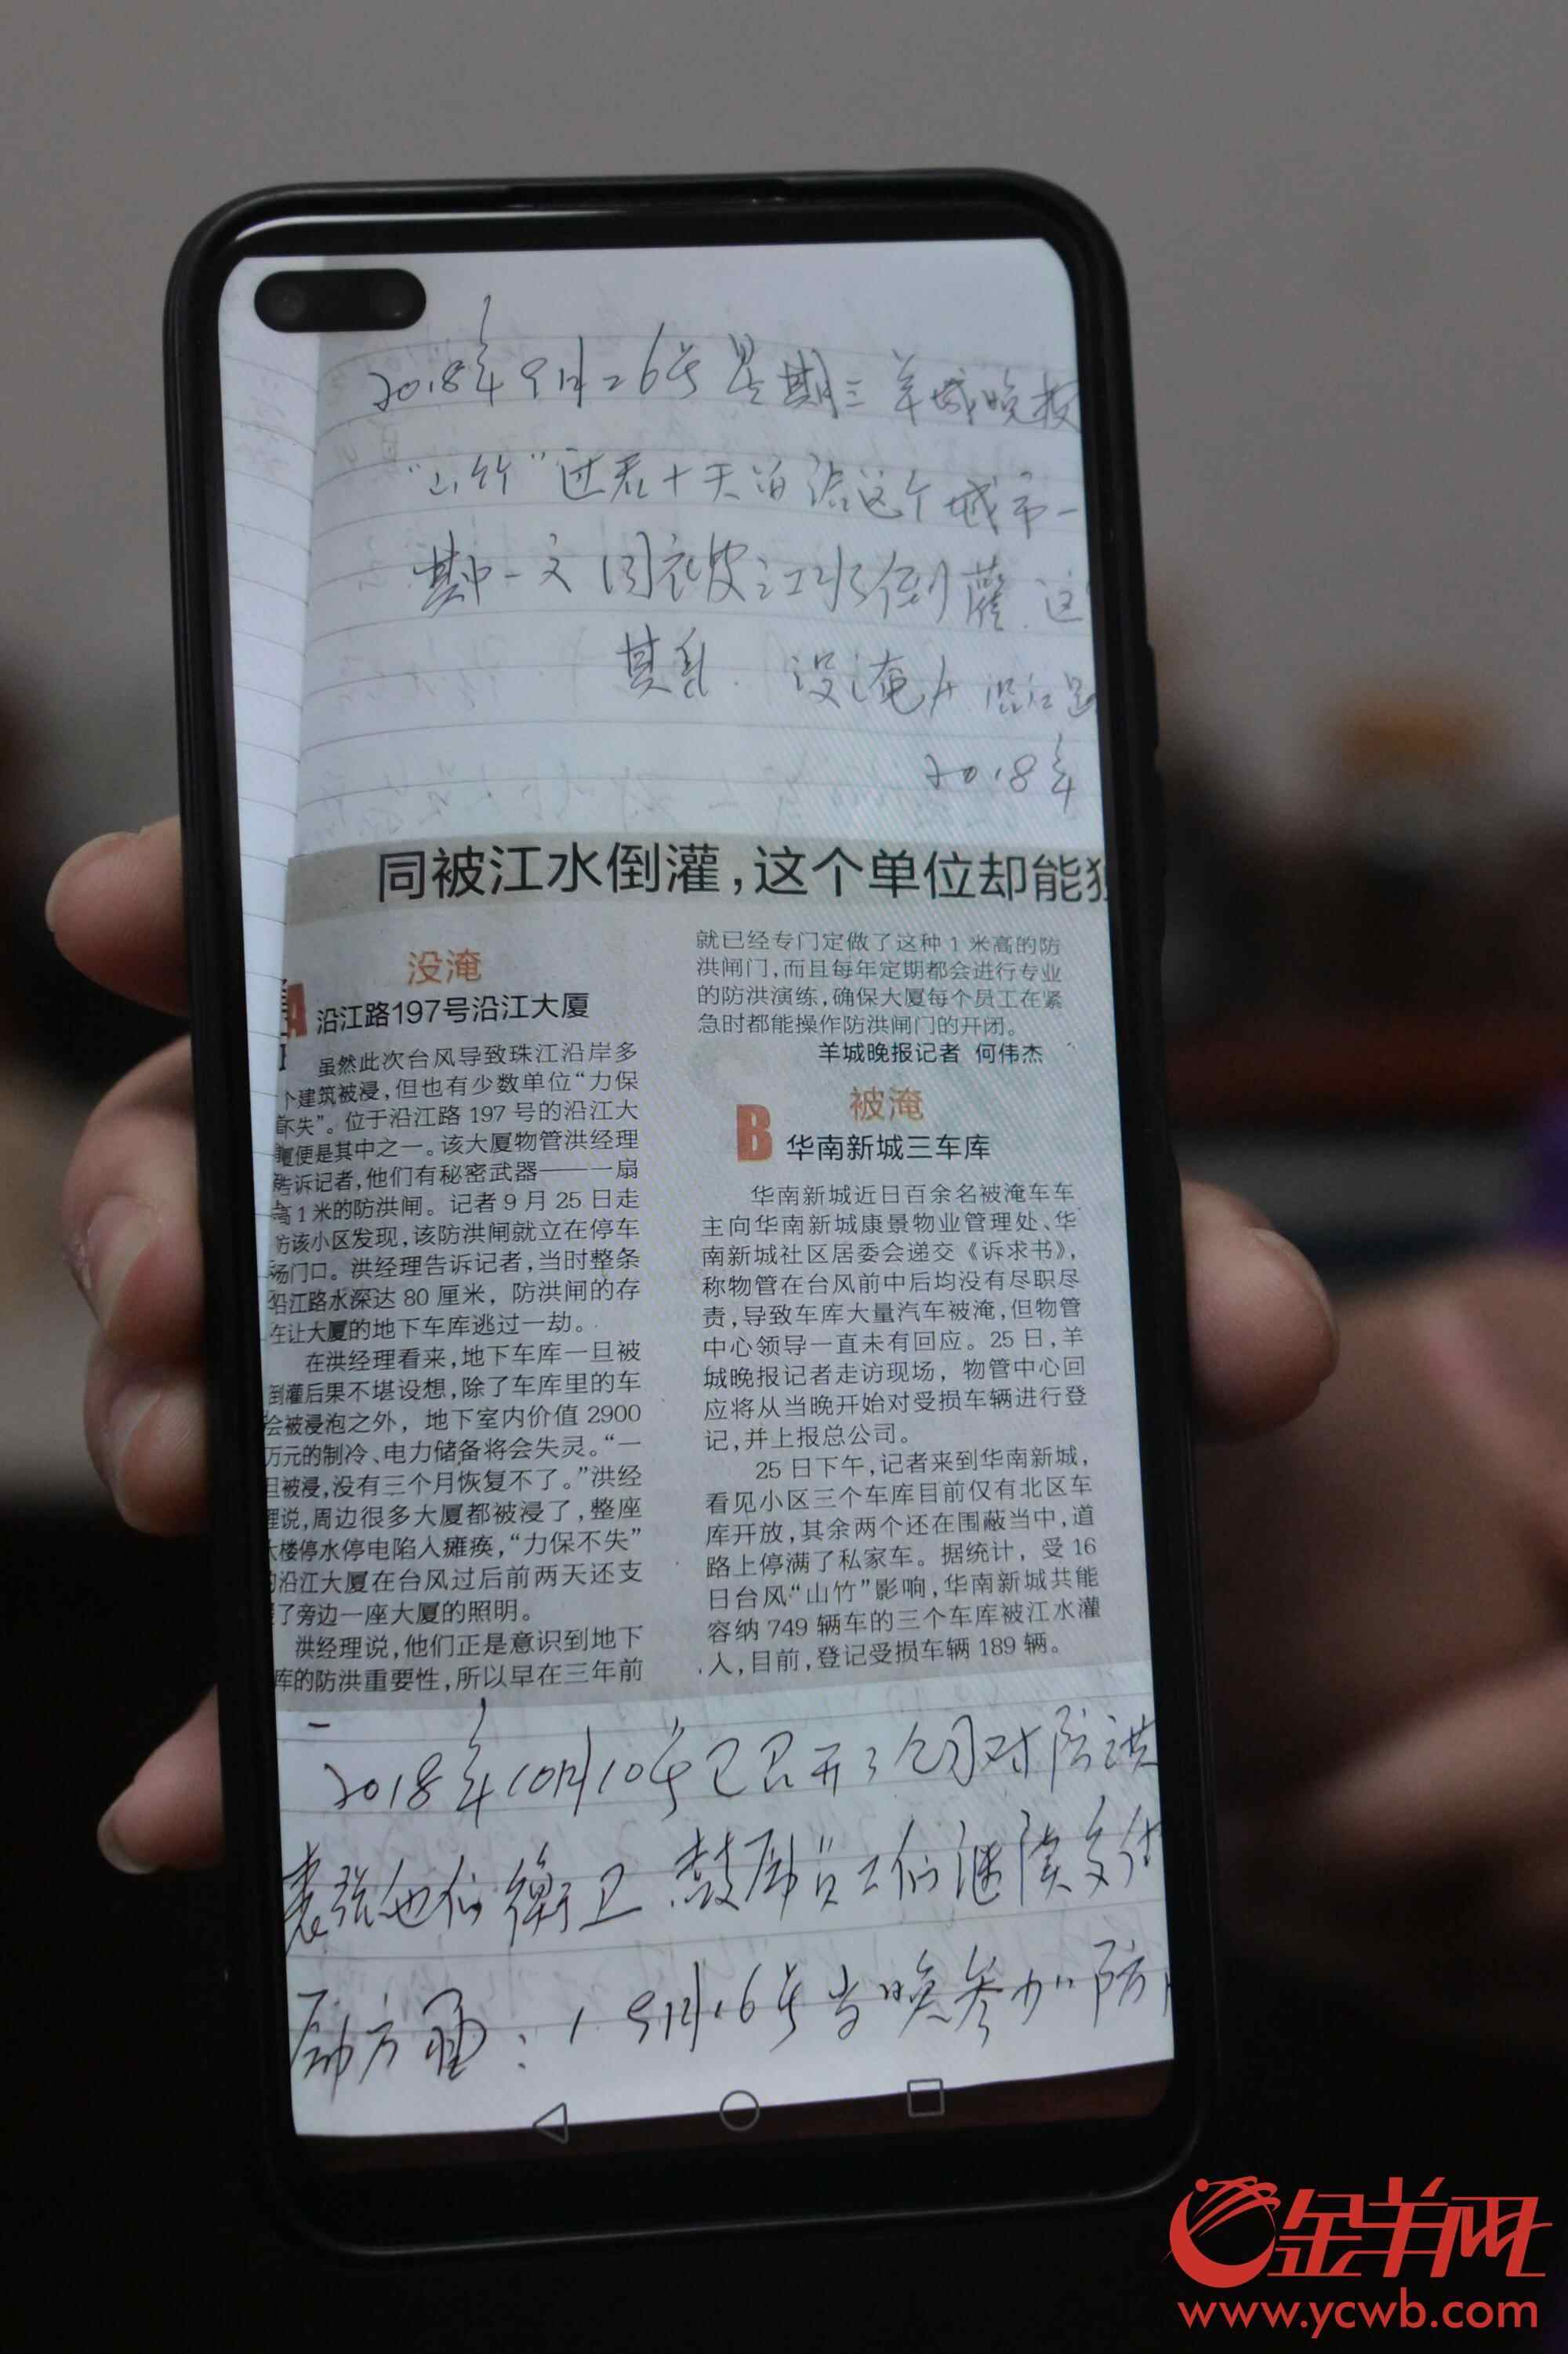 2018年9月26号星期三羊城晚报
“山竹”过后十天留给这个城市一
其中一文同被江水倒灌.这
没淹A沿江
2018年
同被江水倒灌，这个单位却能
没淹
A 沿江路197号沿江大厦
虽然此次台风导致珠江沿岸多
个建筑被浸，但也有少数单位“力保
不失”。位于沿江路 197 号的沿江大
厦便是其中之一。该大厦物管洪经理
告诉记者，他们有秘密武器——一扇
高1米的防洪闸。记者9月25日走
访该小区发现，该防洪闸就立在停车
场门口。洪经理告诉记者，当时整条
沿江路水深达 80 厘米，防洪闸的存
在让大厦的地下车库逃过一劫。
在洪经理看来，地下车库一旦被
倒灌后果不堪设想，除了车库里的车
会被浸泡之外，地下室内价值 2900
万元的制冷、电力储备将会失灵。“一
旦被浸，没有三个月恢复不了。”洪经
理说，周边很多大厦都被浸了，整座
大楼停水停电陷入瘫痪，“力保不失”
的沿江大厦在台风过后前两天还支
了旁边一座大厦的照明。
洪经理说，他们正是意识到地下
库的防洪重要性，所以早在三年前
就已经专门定做了这种1米高的防
洪闸门，而且每年定期都会进行专业
的防洪演练，确保大厦每个员工在紧
急时都能操作防洪闸门的开闭。
羊城晚报记者 何伟杰
被淹
B 华南新城三车库
华南新城近日百余名被淹车车
主向华南新城康景物业管理处、华
南新城社区居委会递交《诉求书》，
称物管在台风前中后均没有尽职尽
责，导致车库大量汽车被淹，但物管
中心领导一直未有回应。25日，羊
城晚报记者走访现场，物管中心回
应将从当晚开始对受损车辆进行登
记，并上报总公司。
25日下午，记者来到华南新城，
看见小区三个车库目前仅有北区车
库开放，其余两个还在围蔽当中，道
路上停满了私家车。据统计，受16
日台风“山竹”影响，华南新城共能
容纳749辆车的三个车库被江水灌
入，目前，登记受损车辆189辆。
2018年10月10号已召开了公司对防洪
鼓励员工们继续
励方面：1.9月16号当晚参加防
金羊网
www.ycwb.com